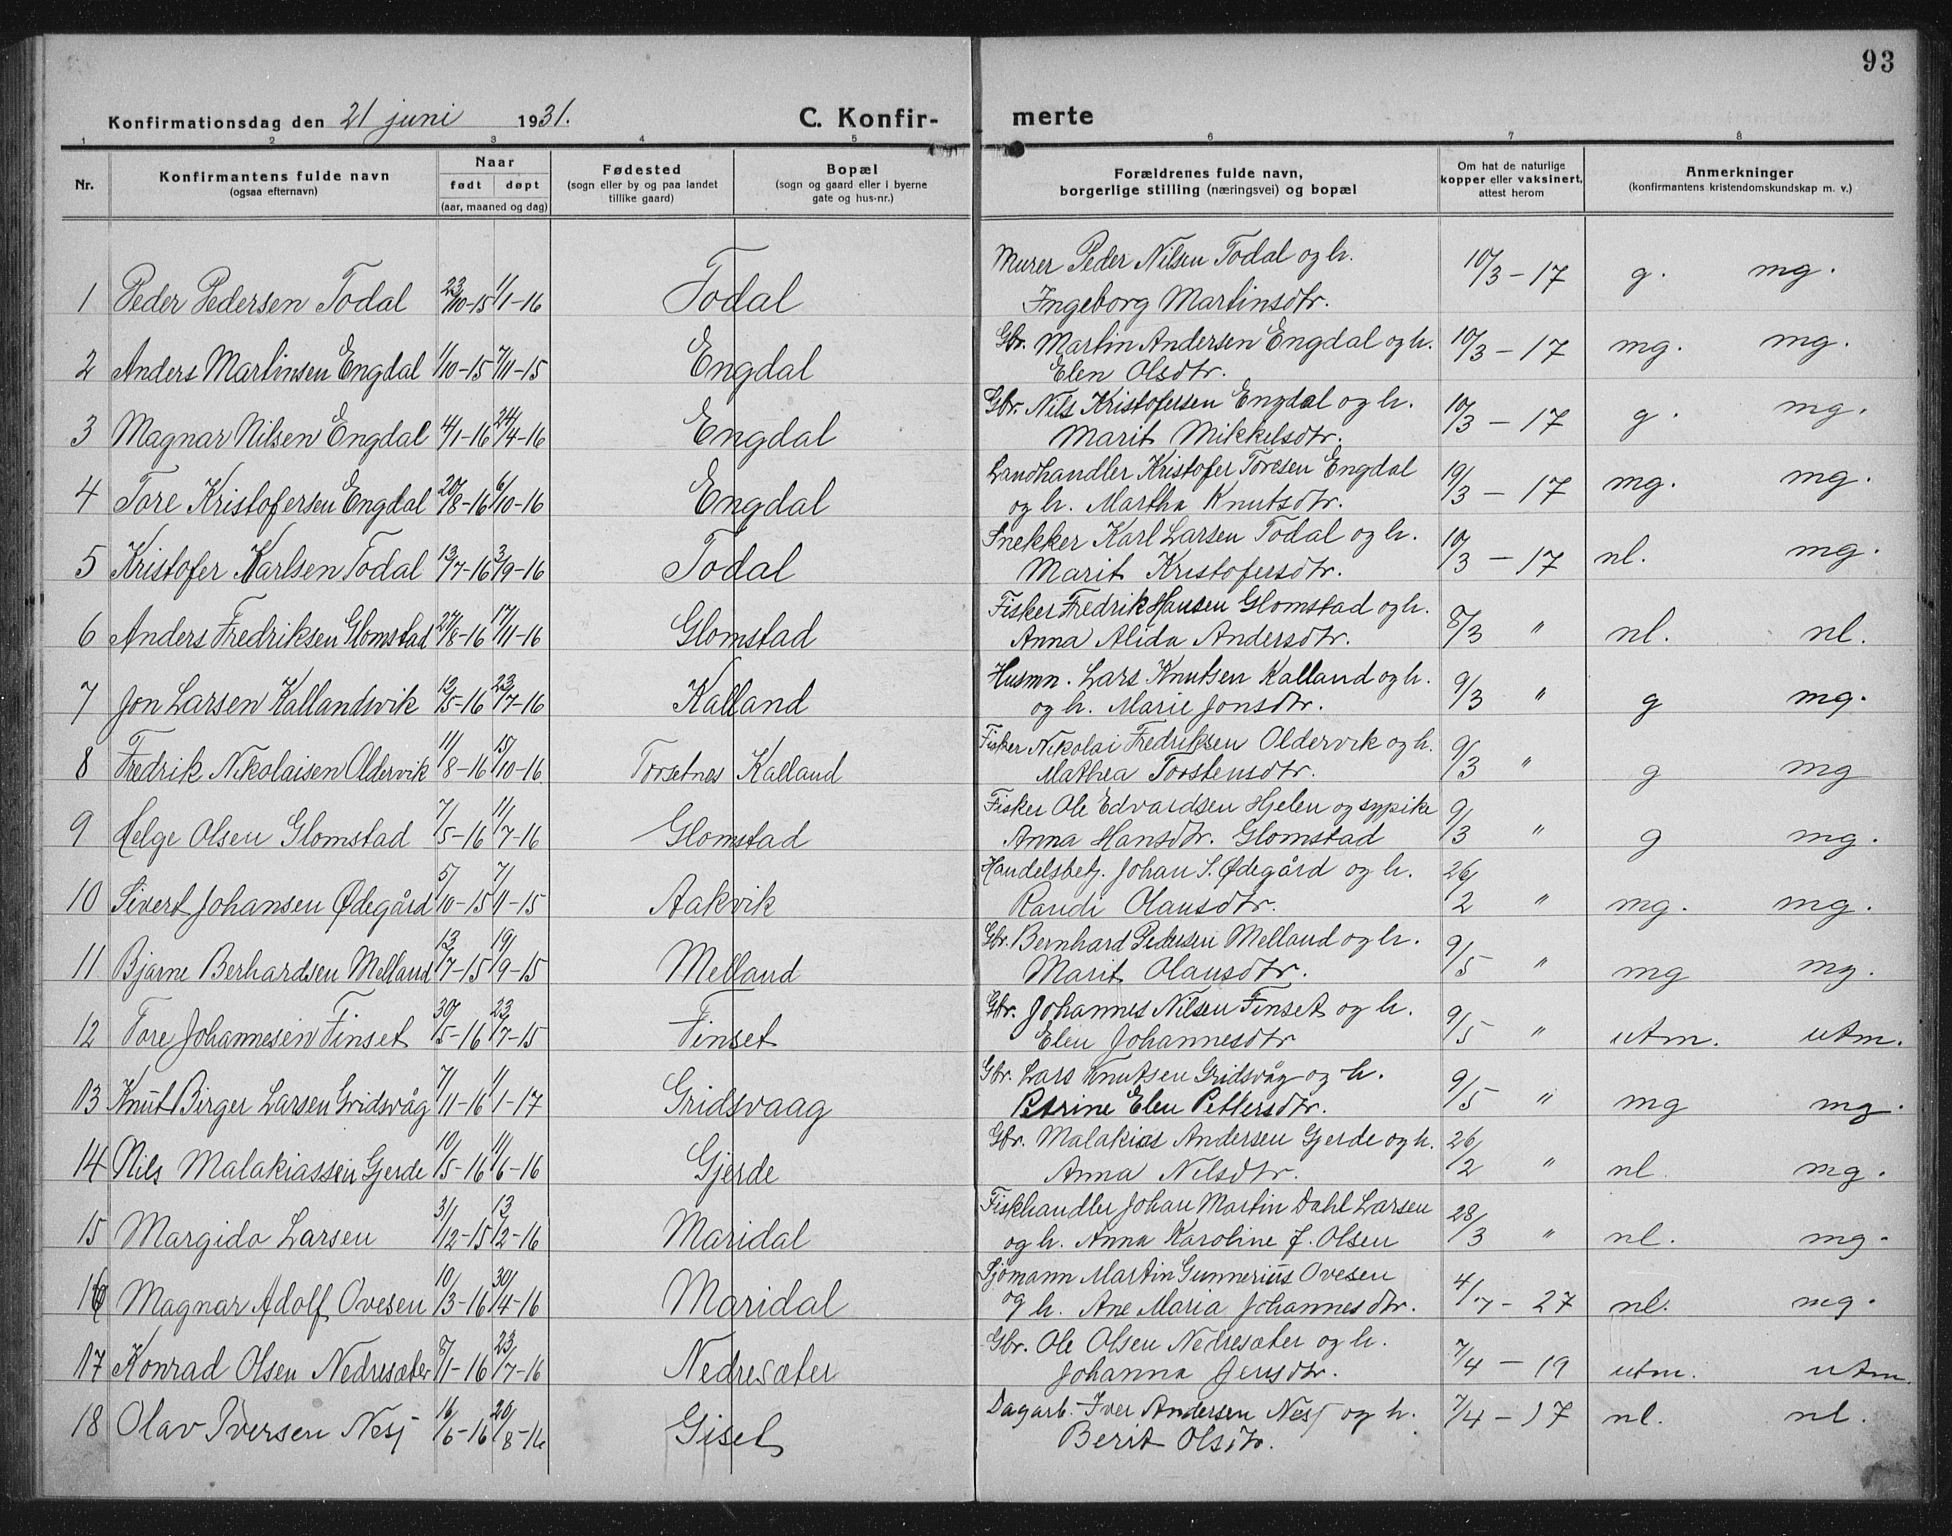 93
Konfirmationsdag den 21 juni 1931. C. Konfir- merte
1 2 3 4 5 6 7 8
Nr. Konfirmantens fulde navn (ogsaa efternavn) Naar født døpt (aar, maaned og dag) Fødested (sogn eller by og paa landet tillike gaard) Bopæl (sogn og gaard eller i byerne gate og hus-nr.) Forældrenes fulde navn, borgerlige stilling (næringsvei) og bopæl Om hat de naturlige kopper eller vaksinert, attest herom Anmerkninger (konfirmantens kristendomskundskap m. v.)
1 Peder Pedersen Todal 23/10-15 1/1-16 Todal Murer Peder Nilsen Todal og h. 10/3-17 g. mg.
Ingeborg Martinsdtr.
2 Anders Martinsen Engdal 1/10-15 7/11-15 Engdal Gbr. Martin Andersen Engdal og h. 10/3-17 mg. mg.
Elen Olsdtr.
3 Magnar Nilsen Engdal 4/1-16 24/4-16 Engdal Gbr. Nils Kristofersen Engdal og h. 10/3-17 g. mg.
Marit Mikkelsdtr.
4 Tore Kristofersen Engdal 20/8-16 6/10-16 Engdal Landhandler Kristofer Toresen Engdal 19/3-17 mg. mg.
og h. Martha Knutsdtr.
5 Kristofer Karlsen Todal 13/7-16 3/9-16 Todal Snekker Karl Larsen Todal og h. 10/3-17 nl. mg.
Marit Kristofersdtr.
6 Anders Fredriksen Glomstad 27/8-16 17/11-16 Glomstad Fisker Fredrik Hansen Glomstad og h. 8/3 " nl. nl.
Anna Alida Andersdtr.
7 Jon Larsen Kallandsvik 13/5-16 23/7-16 Kalland Husmn. Lars Knutsen Kalland og h. 9/3 " g mg.
og h. Marie Jonsdtr.
8 Fredrik Nikolaisen Oldervik 11/8-16 15/10-16 Torsetnes Kalland Fisker Nikolai Fredriksen Oldervik og h. 9/3 " g mg
Mathea Torstensdtr.
9 Helge Olsen Glomstad 7/5-16 11/7-16 Glomstad Fisker Ole Edvardsen Hjelen og sypike 9/3 " g mg.
Anna Hansdtr. Glomstad
10 Sivert Johansen Ødegård 5/10-15 7/11-15 Aakvik Handelsbetj. Johan S. Ødegård og h. 26/2 " mg. mg.
Randi Olausdtr.
11 Bjarne Berhardsen Melland 13/7-15 19/9-15 Melland Gbr. Bernhard Pedersen Melland og h. 9/5 " mg mg.
Marit Olausdtr.
12 Tore Johannesen Finset 30/5-16 23/7-15 Finset Gbr. Johannes Nilsen Finset og h. 9/5 " utm. utm.
Elen Johannesdtr
13 Knut Birger Larsen Gridsvåg 7/11-16 1/1-17 Gridsvaag Gbr. Lars Knutsen Gridsvåg og h. 9/5 " mg mg.
Petrine Elen Pettersdtr.
14 Nils Malakiassen Gjerde 10/5-16 11/6-16 Gjerde Gbr. Malakias Andersen Gjerde og h. 26/2 " nl. mg.
Anna Nilsdtr.
15 Margido Larsen 31/12-15 13/2-16 Maridal Fiskhandler Johan Martin Dahl Larsen 28/3 " nl. mg.
og h. Anna Karoline J. Olsen
16 Magnar Adolf Ovesen 10/3-16 30/4-16 Maridal Sjømann Martin Gunnerius Ovesen 4/7-27 nl. mg.
og h. Ane Maria Johannesdtr.
17 Konrad Olsen Nedresæter 8/1-16 23/7-16 Nedresæter Gbr. Ole Olsen Nedresæter og h. 7/4-19 utm. utm.
Johanna Jensdtr.
18 Olav Iversen Nesj 16/6-16 20/8-16 Gisel Dagarb. Iver Andersen Nesj og h. 7/4-17 nl. nl.
Berit Olsdtr.